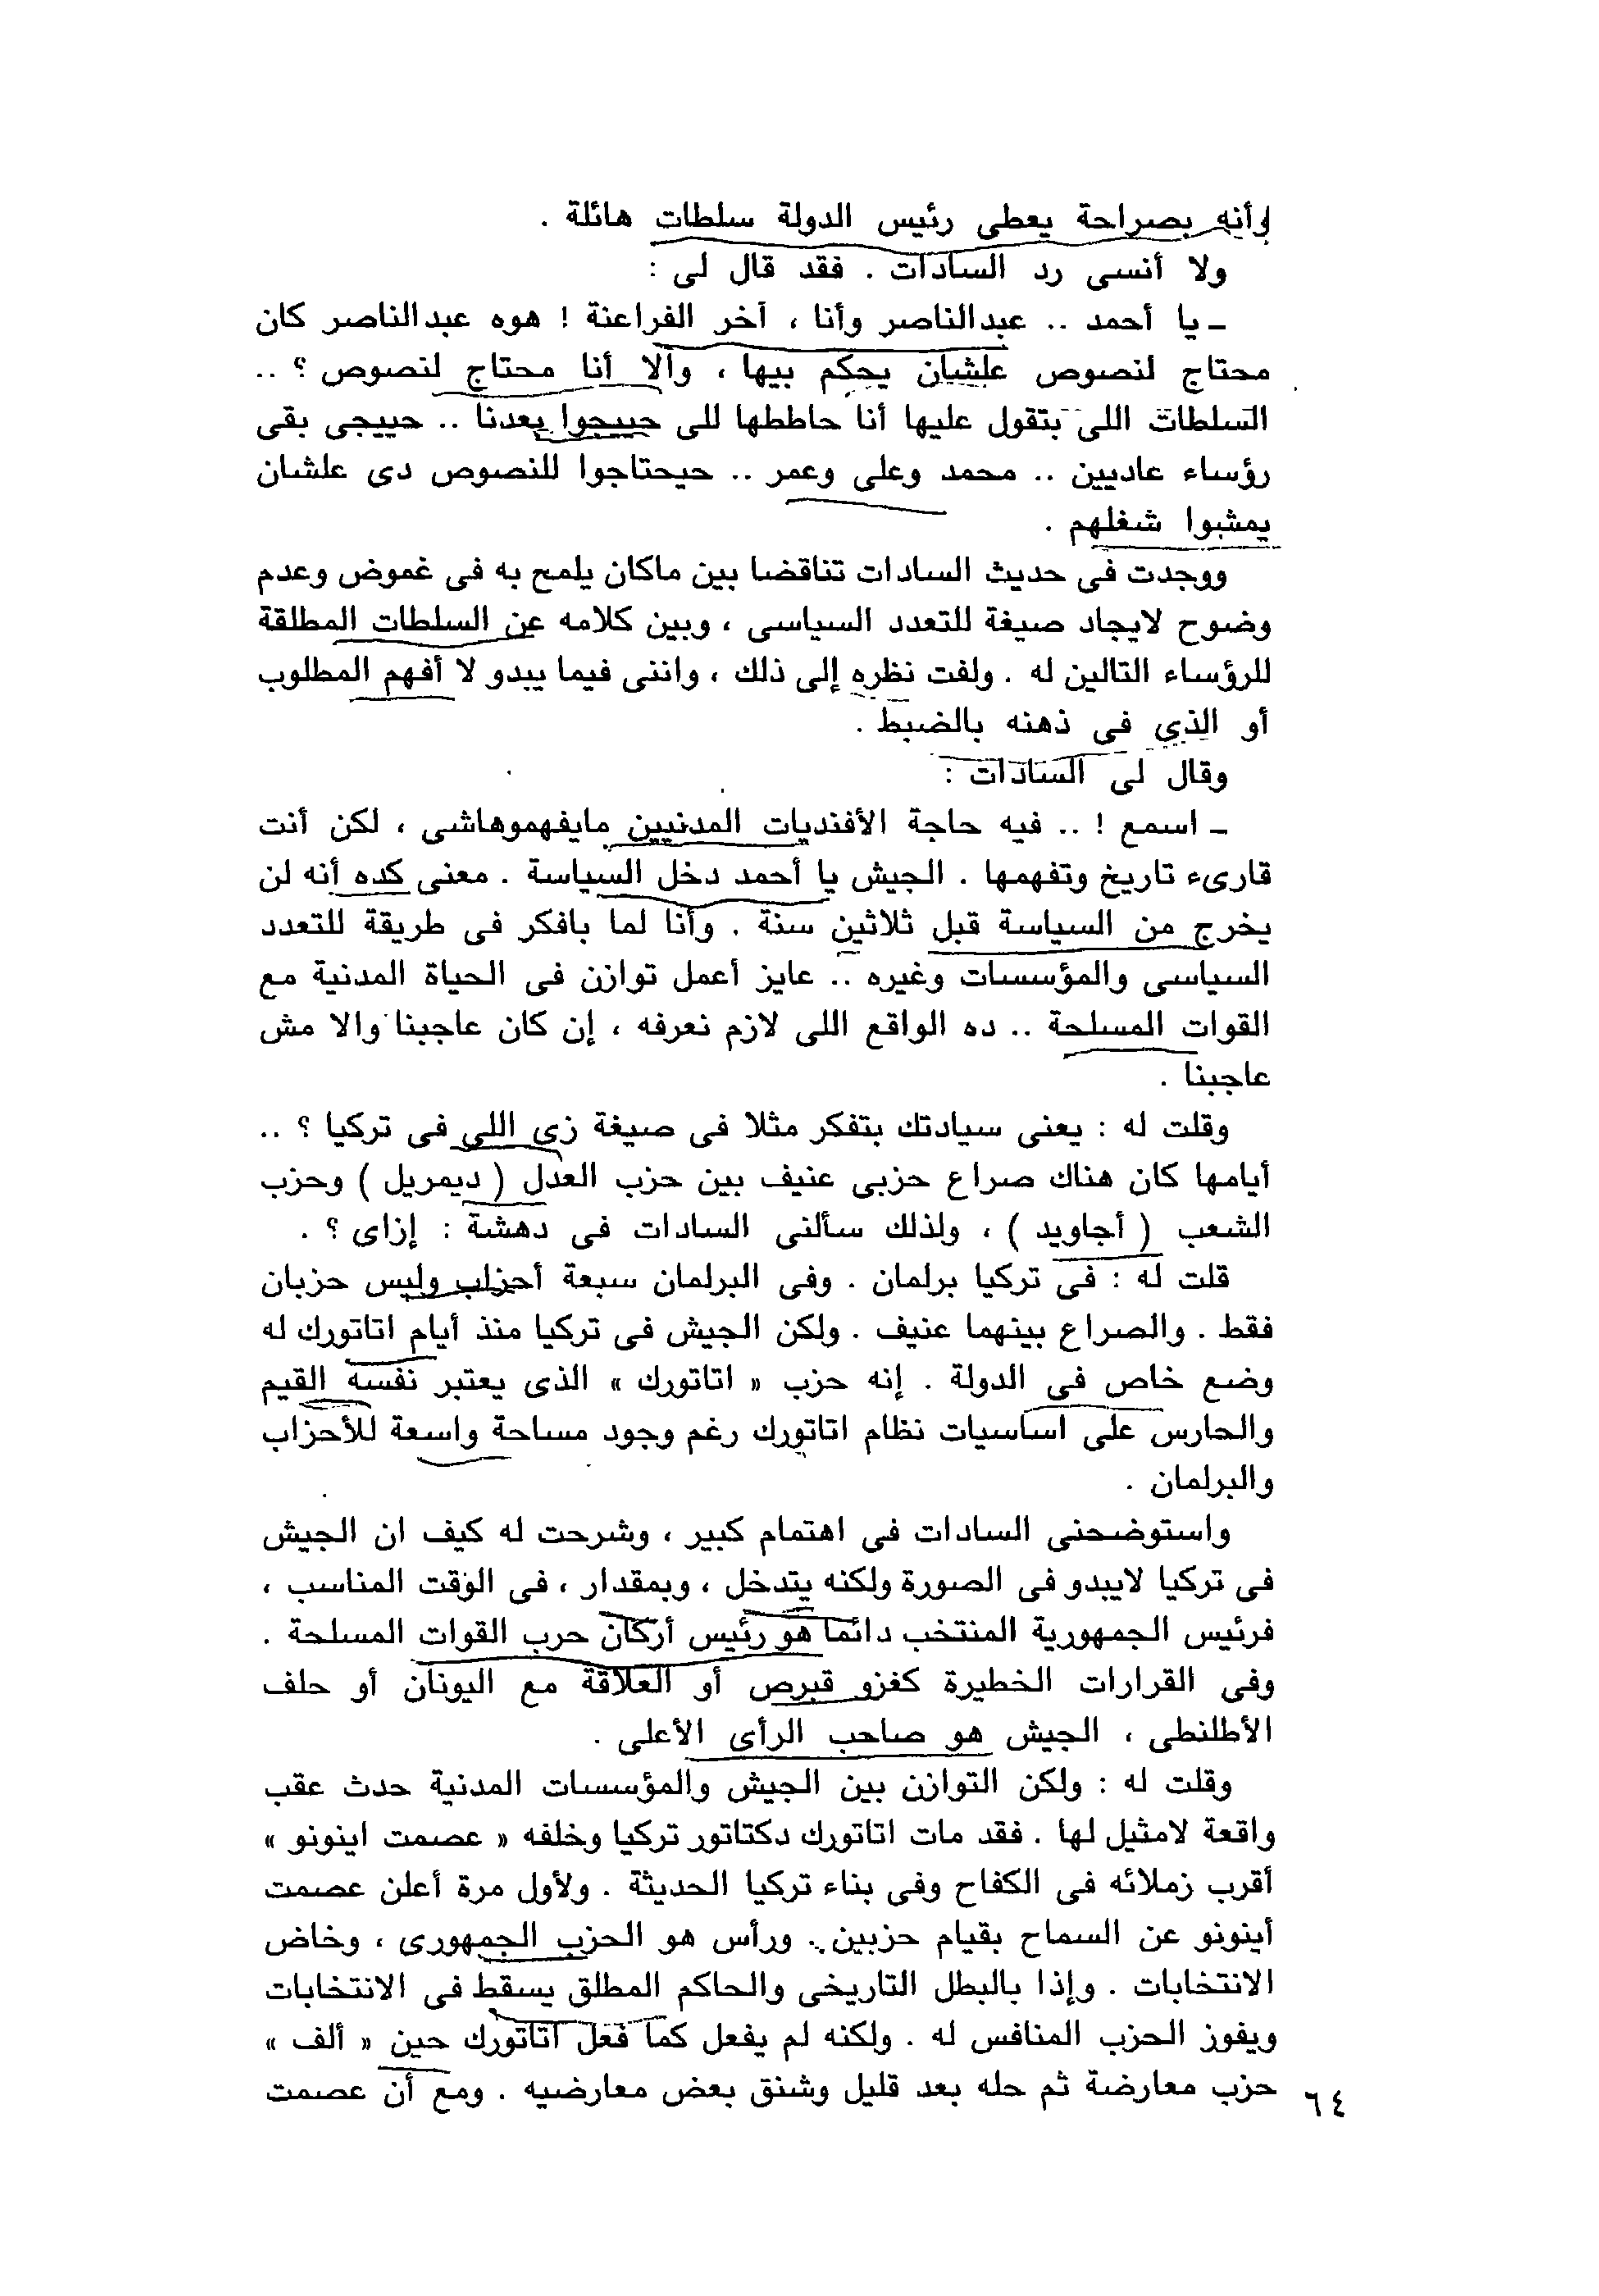 وأنه بصراحة يعطى رئيس الدولة سلطات هائلة .
ولا أنسى رد السادات . فقد قال لى :
ـ يا أحمد .. عبدالناصر وأنا ، آخر الفراعنة ! هوه عبدالناصر كان
محتاج لنصوص علشان يحكم بيها ، والا أنا محتاج لنصوص ؟ ..
السلطات اللى بتقول عليها أنا حاططها للى حييجوا بعدنا .. حييجى بقى
رؤساء عاديين .. محمد وعلى وعمر .. حيحتاجوا للنصوص دى علشان
يمشبوا شغلهم .
ووجدت فى حديث السادات تناقضا بين ماكان يلمح به فى غموض وعدم
وضوح لايجاد صيغة للتعدد السياسى ، وبين كلامه عن السلطات المطلقة
للرؤساء التالين له . ولفت نظره إلى ذلك ، واننى فيما يبدو لا أفهم المطلوب
أو الذى فى ذهنه بالضبط .
وقال لى السادات :
ـ اسمع ! .. فيه حاجة الأفنديات المدنيين مايفهموهاشى ، لكن أنت
قارىء تاريخ وتفهمها . الجيش يا أحمد دخل السياسة . معنى كده أنه لن
يخرج من السياسة قبل ثلاثين سنة . وأنا لما بافكر فى طريقة للتعدد
السياسى والمؤسسات وغيره .. عايز أعمل توازن فى الحياة المدنية مع
القوات المسلحة .. ده الواقع اللى لازم نعرفه ، إن كان عاجبنا والا مش
عاجبنا .
وقلت له : يعنى سيادتك بتفكر مثلا فى صيغة زى اللى فى تركيا ؟ ..
أيامها كان هناك صراع حزبى عنيف بين حزب العدل ( ديمريل ) وحزب
الشعب ( أجاويد ) ، ولذلك سألنى السادات فى دهشة : إزاى ؟ .
قلت له : فى تركيا برلمان . وفى البرلمان سبعة أحزاب وليس حزبان
فقط . والصراع بينهما عنيف . ولكن الجيش فى تركيا منذ أيام اتاتورك له
وضع خاص فى الدولة . إنه حزب « اتاتورك » الذى يعتبر نفسه القيم
والحارس على اساسيات نظام اتاتورك رغم وجود مساحة واسعة للأحزاب
والبرلمان .
واستوضحنى السادات فى اهتمام كبير ، وشرحت له كيف ان الجيش
فى تركيا لايبدو فى الصورة ولكنه يتدخل ، وبمقدار ، فى الوقت المناسب ،
فرئيس الجمهورية المنتخب دائما هو رئيس أركان حرب القوات المسلحة .
وفى القرارات الخطيرة كغزو قبرص أو العلاقة مع اليونان أو حلف
الأطلنطى ، الجيش هو صاحب الرأى الأعلى .
وقلت له : ولكن التوازن بين الجيش والمؤسسات المدنية حدث عقب
واقعة لامثيل لها . فقد مات اتاتورك دكتاتور تركيا وخلفه « عصمت اينونو »
أقرب زملائه فى الكفاح وفى بناء تركيا الحديثة . ولأول مرة أعلن عصمت
أينونو عن السماح بقيام حزبين . ورأس هو الحزب الجمهورى ، وخاض
الانتخابات . وإذا بالبطل التاريخى والحاكم المطلق يسقط فى الانتخابات
ويفوز الحزب المنافس له . ولكنه لم يفعل كما فعل اتاتورك حين « ألف »
حزب معارضة ثم حله بعد قليل وشنق بعض معارضيه . ومع أن عصمت
٦٤